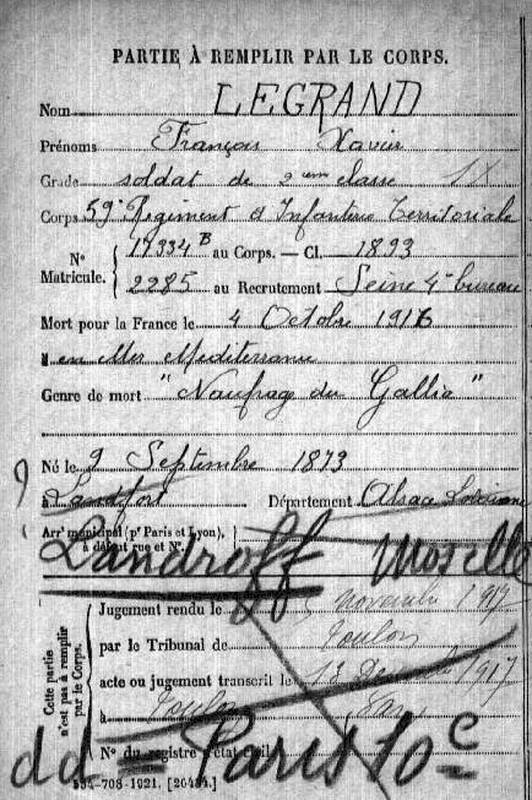 PARTIE À REMPLIR PAR LE CORPS.
Nom LEGRAND
Prénoms François Xavier
Grade soldat de 2eme classe
Corps 59e Regiment d'Infanterie Territoriale
N° Matricule. 17334 B au Corps. — Cl. 1893
2285 au Recrutement Seine 4e bureau
Mort pour la France le 4 Octobre 1916
en Mer Mediterranée
Genre de mort "Naufrage du Gallia"
Né le 9 Septembre 1873
à Landfort Département Alsace Lorraine
Arrt municipal (pr Paris et Lyon),
à défaut rue et N°.
Landroff Moselle
Cette partie n'est pas à remplir par le Corps.
Jugement rendu le novembre 1917
par le Tribunal de Toulon
acte ou jugement transcrit le 12 Decembre 1917
à Toulon Var
N° du registre d'état civil
dd = Paris 10e
534-708-1921. [26434.]